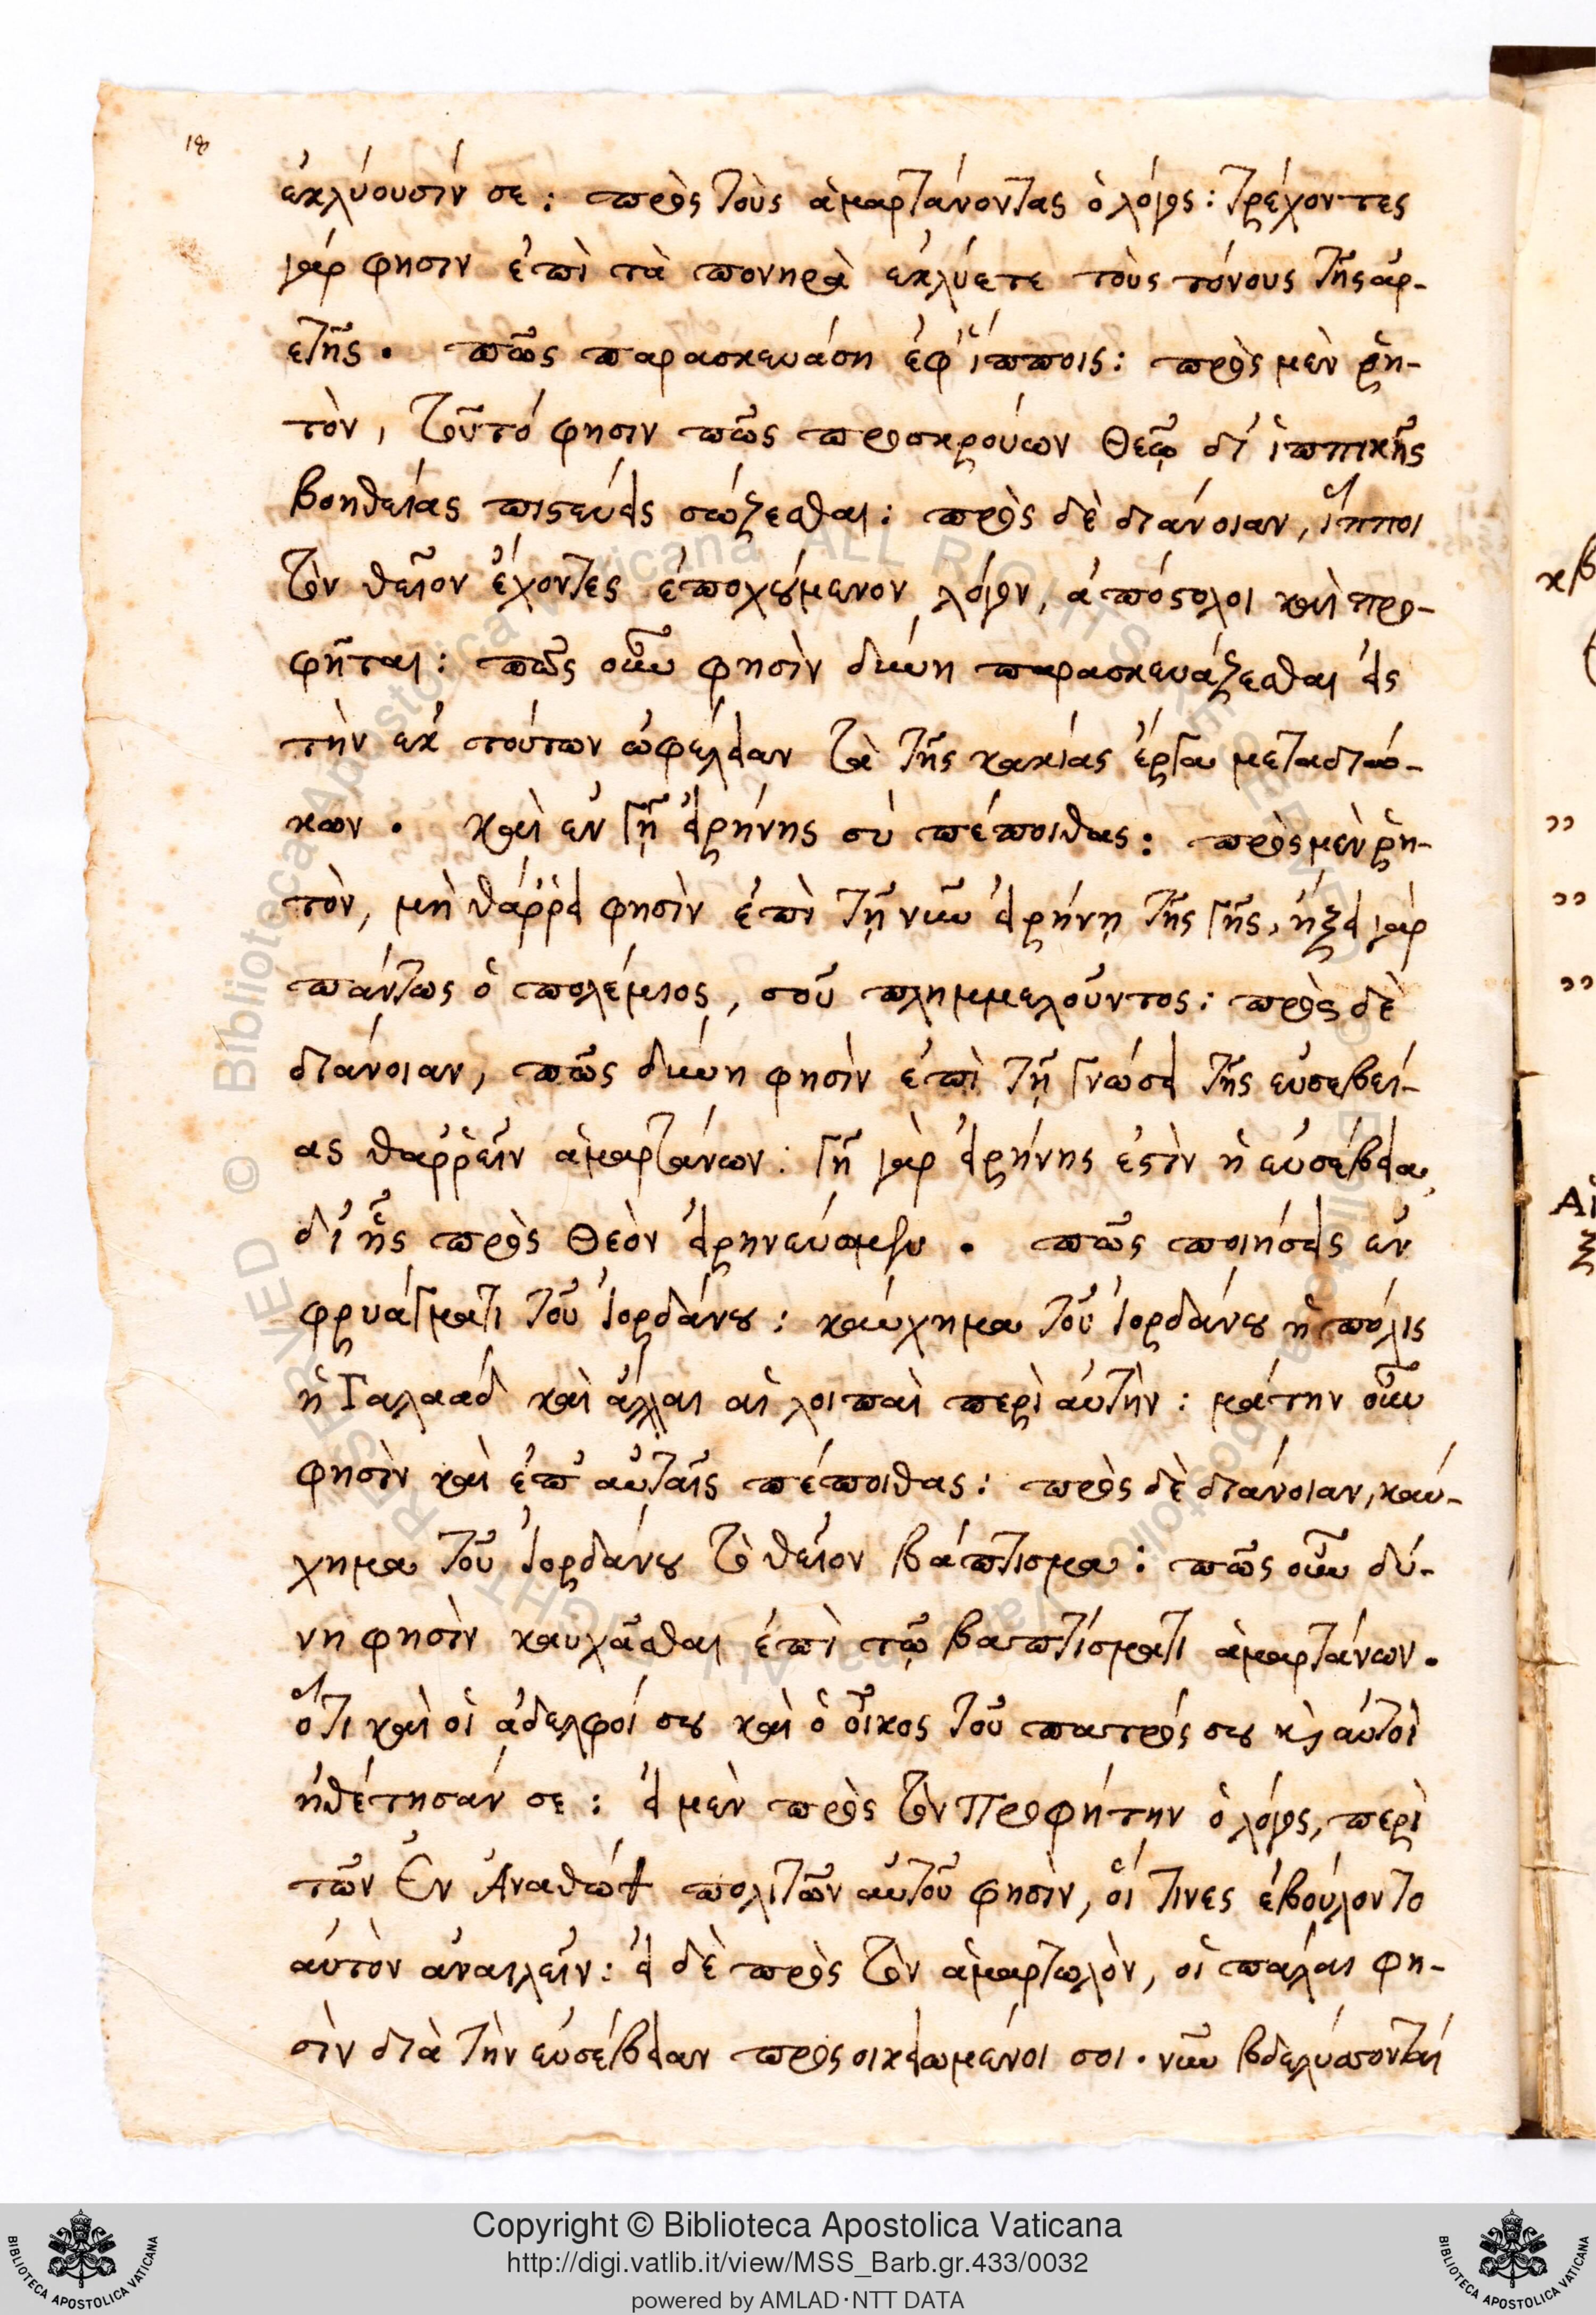 18
ἐκλύουσίν σε : πρὸς τοὺς ἁμαρτάνοντας ὁ λόγος : τρέχοντες
γάρ φησιν ἐπὶ τὰ πονηρὰ ἐκλύετε τοὺς τόνους τῆς ἀρ-
ετῆς . πῶς παρασκευάση ἐφ’ ἵπποις : πρὸς μὲν ῥη-
τὸν , τοῦτό φησιν πῶς προσκρούων Θεῷ δι’ ἱππικῆς
βοηθείας πιστεύεις σώζεσθαι : πρὸς δὲ διάνοιαν , ἵπποι
τὸν θεῖον ἔχοντες ἐποχούμενον λόγον , ἀπόστολοι καὶ προ-
φῆται : πῶς οὖν φησὶν δύνη παρασκευάζεσθαι εἰς
τὴν ἐκ τούτων ὠφέλειαν τὰ τῆς κακίας ἔργα μεταδιώ-
κων . καὶ ἐν γῇ εἰρήνης σὺ πέποιθας : πρὸς μὲν ῥη-
τὸν , μὴ θάρρει φησὶν ἐπὶ τῇ νῦν εἰρήνῃ τῆς γῆς , ἥξει γὰρ
πάντως ὁ πολέμιος , σοῦ πλημμελοῦντος : πρὸς δὲ
διάνοιαν , πῶς δύνη φησὶν ἐπὶ τῇ γνώσει τῆς εὐσεβεί-
ας θαρρεῖν ἁμαρτάνων : γῆ γὰρ εἰρήνης ἐστὶν ἡ εὐσέβεια ,
δι’ ἧς πρὸς Θεὸν εἰρηνεύομεν . πῶς ποιήσεις ἐν
φρυάγματι τοῦ Ἰορδάνου : καύχημα τοῦ Ἰορδάνου ἡ πόλις
ἡ Γαλαὰδ καὶ ἄλλαι αἱ λοιπαὶ περὶ αὐτὴν : μάτην οὖν
φησὶν καὶ ἐπ’ αὐταῖς πέποιθας : πρὸς δὲ διάνοιαν , καύ-
χημα τοῦ Ἰορδάνου τὸ θεῖον βάπτισμα : πῶς οὖν δύ-
νη φησὶν καυχᾶσθαι ἐπὶ τῷ βαπτίσματι ἁμαρτάνων .
ὅτι καὶ οἱ ἀδελφοί σου καὶ ὁ οἶκος τοῦ πατρός σου κ̀ αὐτοὶ
ἠθέτησάν σε : εἰ μὲν πρὸς τὸν Προφήτην ὁ λόγος , περὶ
τῶν Ἐν Ἀναθὼθ πολιτῶν αὐτοῦ φησὶν , οἵ τινες ἐβούλοντο
αὐτὸν ἀναιλεῖν : εἰ δὲ πρὸς τὸν ἁμαρτωλὸν , οἱ πάλαι φη-
σὶν διὰ τὴν εὐσέβειαν προσοικειωμένοι σοι · νῦν βδελύσσονταί
Copyright © Biblioteca Apostolica Vaticana
http://digi.vatlib.it/view/MSS_Barb.gr.433/0032
powered by AMLAD·NTT DATA